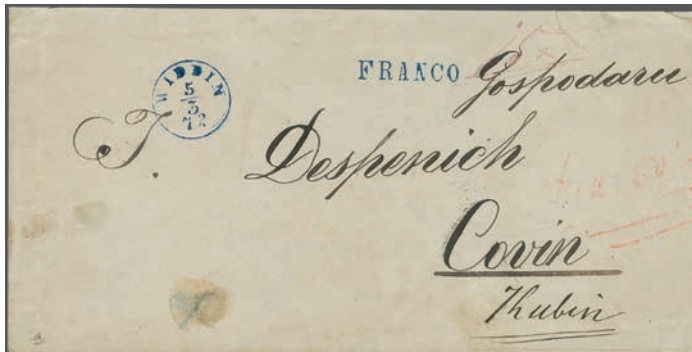 WIDDIN
5
3
72
FRANCO Gospodaru
J. Despenich
Covin
Kubin